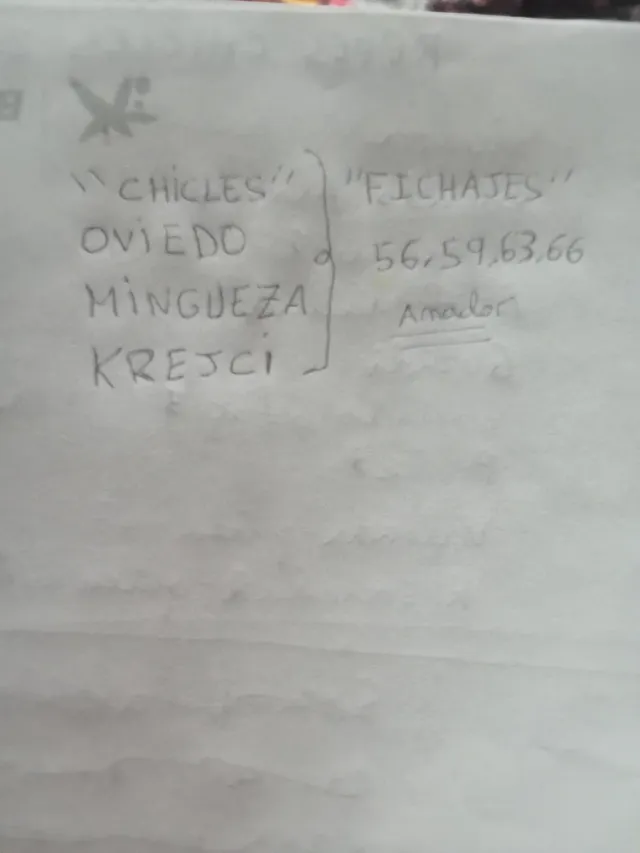 "CHiCLES"
OViEDO
MiNGUEZA
KREJCi
"FICHAJES"
56,59,63,66
Amador